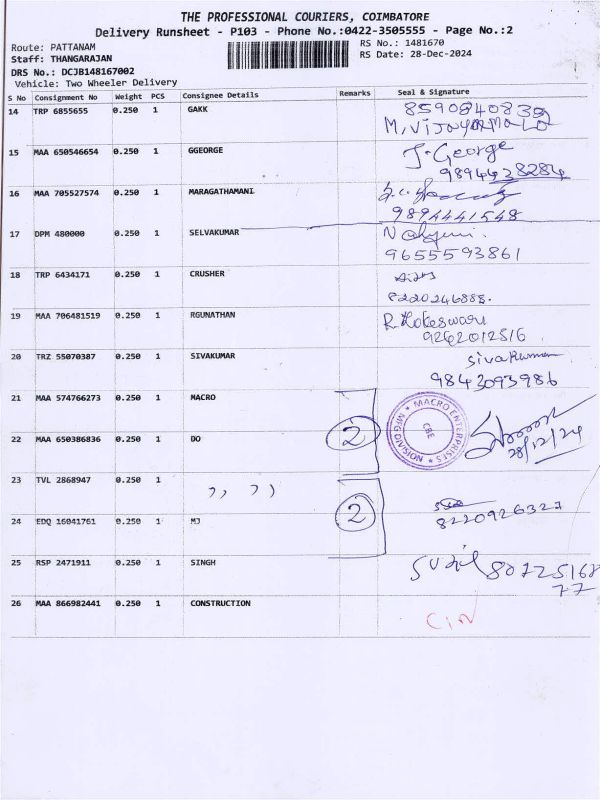 THE PROFESSIONAL COURIERS, COIMBATORE
Delivery Runsheet - P103 - Phone No.:0422-3505555 - Page No.:2
Route: PATTANAM
RS No.: 1481670
Staff: THANGARAJAN
RS Date: 28-Dec-2024
DRS No.: DCJB148167002
Vehicle: Two Wheeler Delivery
S No Consignment No Weight PCS Consignee Details Remarks Seal & Signature
14 TRP 6855655 0.250 1 GAKK 8590840839
M.Vijayamala
15 MAA 650546654 0.250 1 GGEORGE J. George
9894438284
16 MAA 705527574 0.250 1 MARAGATHAMANI
9894441548
17 DPM 480000 0.250 1 SELVAKUMAR
9655593861
18 TRP 6434171 0.250 1 CRUSHER
8220246888.
19 MAA 706481519 0.250 1 RGUNATHAN R. Hokeswari
9262012516
20 TRZ 55070387 0.250 1 SIVAKUMAR Sivakumar
9843093986
21 MAA 574766273 0.250 1 MACRO
MACRO ENTERPRISES
MFG DIVISION
CBE
22 MAA 650386836 0.250 1 DO 2
28/12/24
23 TVL 2868947 0.250 1 ,, ,,
24 EDQ 16041761 0.250 1 MJ 2
8220926327
25 RSP 2471911 0.250 1 SINGH 80725168
77
26 MAA 866982441 0.250 1 CONSTRUCTION
CIN